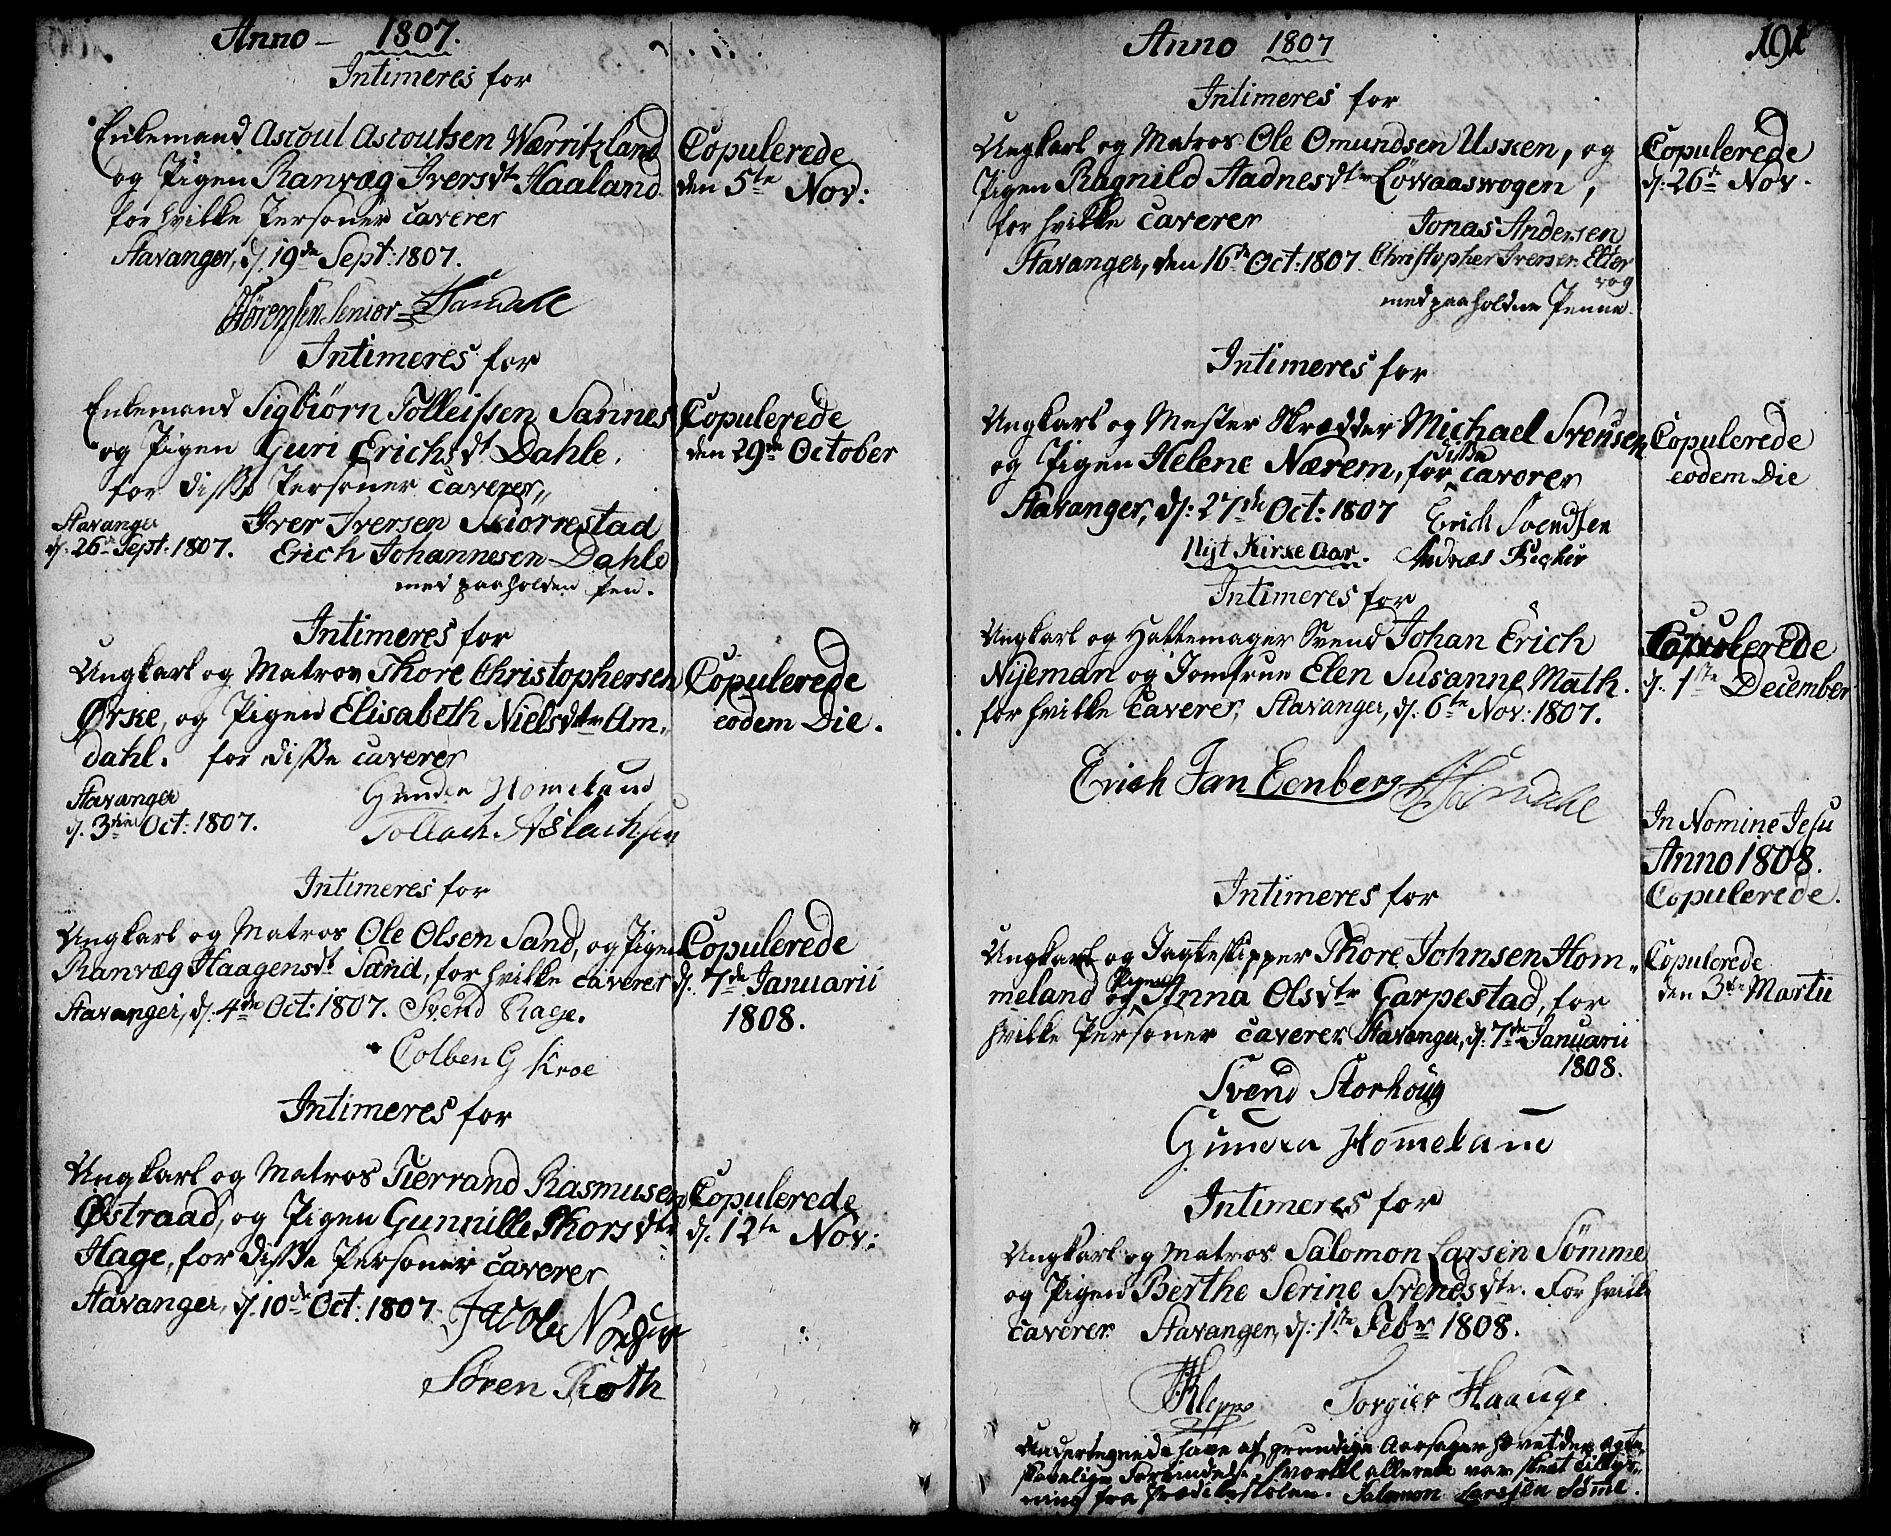 Anno 1807.
Intimeres for
Enkemand Ascoul Ascoulsen Wærritzland
og Pigen Ranvæg Iversdtr Haaland
for hvilke Personer caverer
Stavanger, d. 19de Sept: 1807.
Sørensen Senior
Copulerede
den 5te Nov:
Intimeres for
Enkemand Sigbiörn Tolleifsen Sannes
og Pigen Guri Erichsdt Dahle.
for disse Personer caverer,,
Stavanger
d. 26de Sept: 1807.
Iver Iversen Skiorrestad
Erich Johannesen Dahle
med paaholden Pen.
Copulerede
den 29de October
Intimeres for
Ungkarl og Matros Thore Christophersen
Ørke, og Pigen Elisabeth Nielsdtr Am,,
dahl. for disse caverer
Stavanger
d. 3die Oct: 1807.
Gunden Homeland
Tollach Aslachsen
Copulerede
eodem Die.
Intimeres for
Ungkarl og Matros Ole Olsen Sand, og Pigen
Ranvæg Haagensdt Sand, for hvilke caverer
Stavanger, d. 4de Oct: 1807. Svend Rage.
Colben G Kroe
Copulerede
d. 7de Januarii
1808.
Intimeres for
Ungkarl og Matros Tierrand Rasmusen
Østraad, og Pigen Gunnille Thorsdtr
Hage, for disse Personer caverer
Stavanger, d. 10de Oct: 1807
Søren Roth
Copulerede
d. 12te Nov:
Anno 1807
191
Intimeres for
Ungkarl og Matros Ole Omundsen Usken, og
Pigen Ragnild Aadnesdtr Löwaaswogen,
for hvilke caverer
Jonas Andersen
Stavanger, den 16de Oct: 1807. Christopher Iversen Elter
vog
med paaholden Penne.
Copulerede
d: 26de Nov.
Intimeres for
Ungkarl og Mester Skrædder Michael Svensen
og Pigen Helene Nærem, for disse caverer
Stavanger, d: 27de Oct: 1807
Erich Svendsen
Nijt Kirke Aar.
Andreas
Copulerede
eodem Die
Intimeres for
Ungkarl og Hattemager Svend Johan Erich
Nijeman og Jomfrue Elen Susanne Math.
for hvilke caverer, Stavanger, d. 6te Nov: 1807.
Erich Jan Eenberg
Copulerede
d. 1ste December
In Nomine Jesu
Anno 1808.
Copulerede.
Intimeres for
Ungkarl og Jagteskipper Thore Johnsen Hom,,
meland og Pigen Anna Olsdtr Garpestad, for
hvilke Personer caverer Stavanger, d. 7de Januarii
1808.
Svend Storhoug
Gunden Homeland
Copulerede
den 3die Martii
Intimeres for
Ungkarl og Matros Salomon Larsen Sömme
og Pigen Berthe Serine Svendsdtr. For hvilke
caverer Stavanger, d: 1ste Febr 1808.
Kleppe Torgier Haauge
Undertegnede have af grundige Aarsager hævet den ægte,,
skabelige Forbindelse, hvortil allerede var skeet tillys,,
ning fra Prædikestolen. Salomon Larsen Sömme.